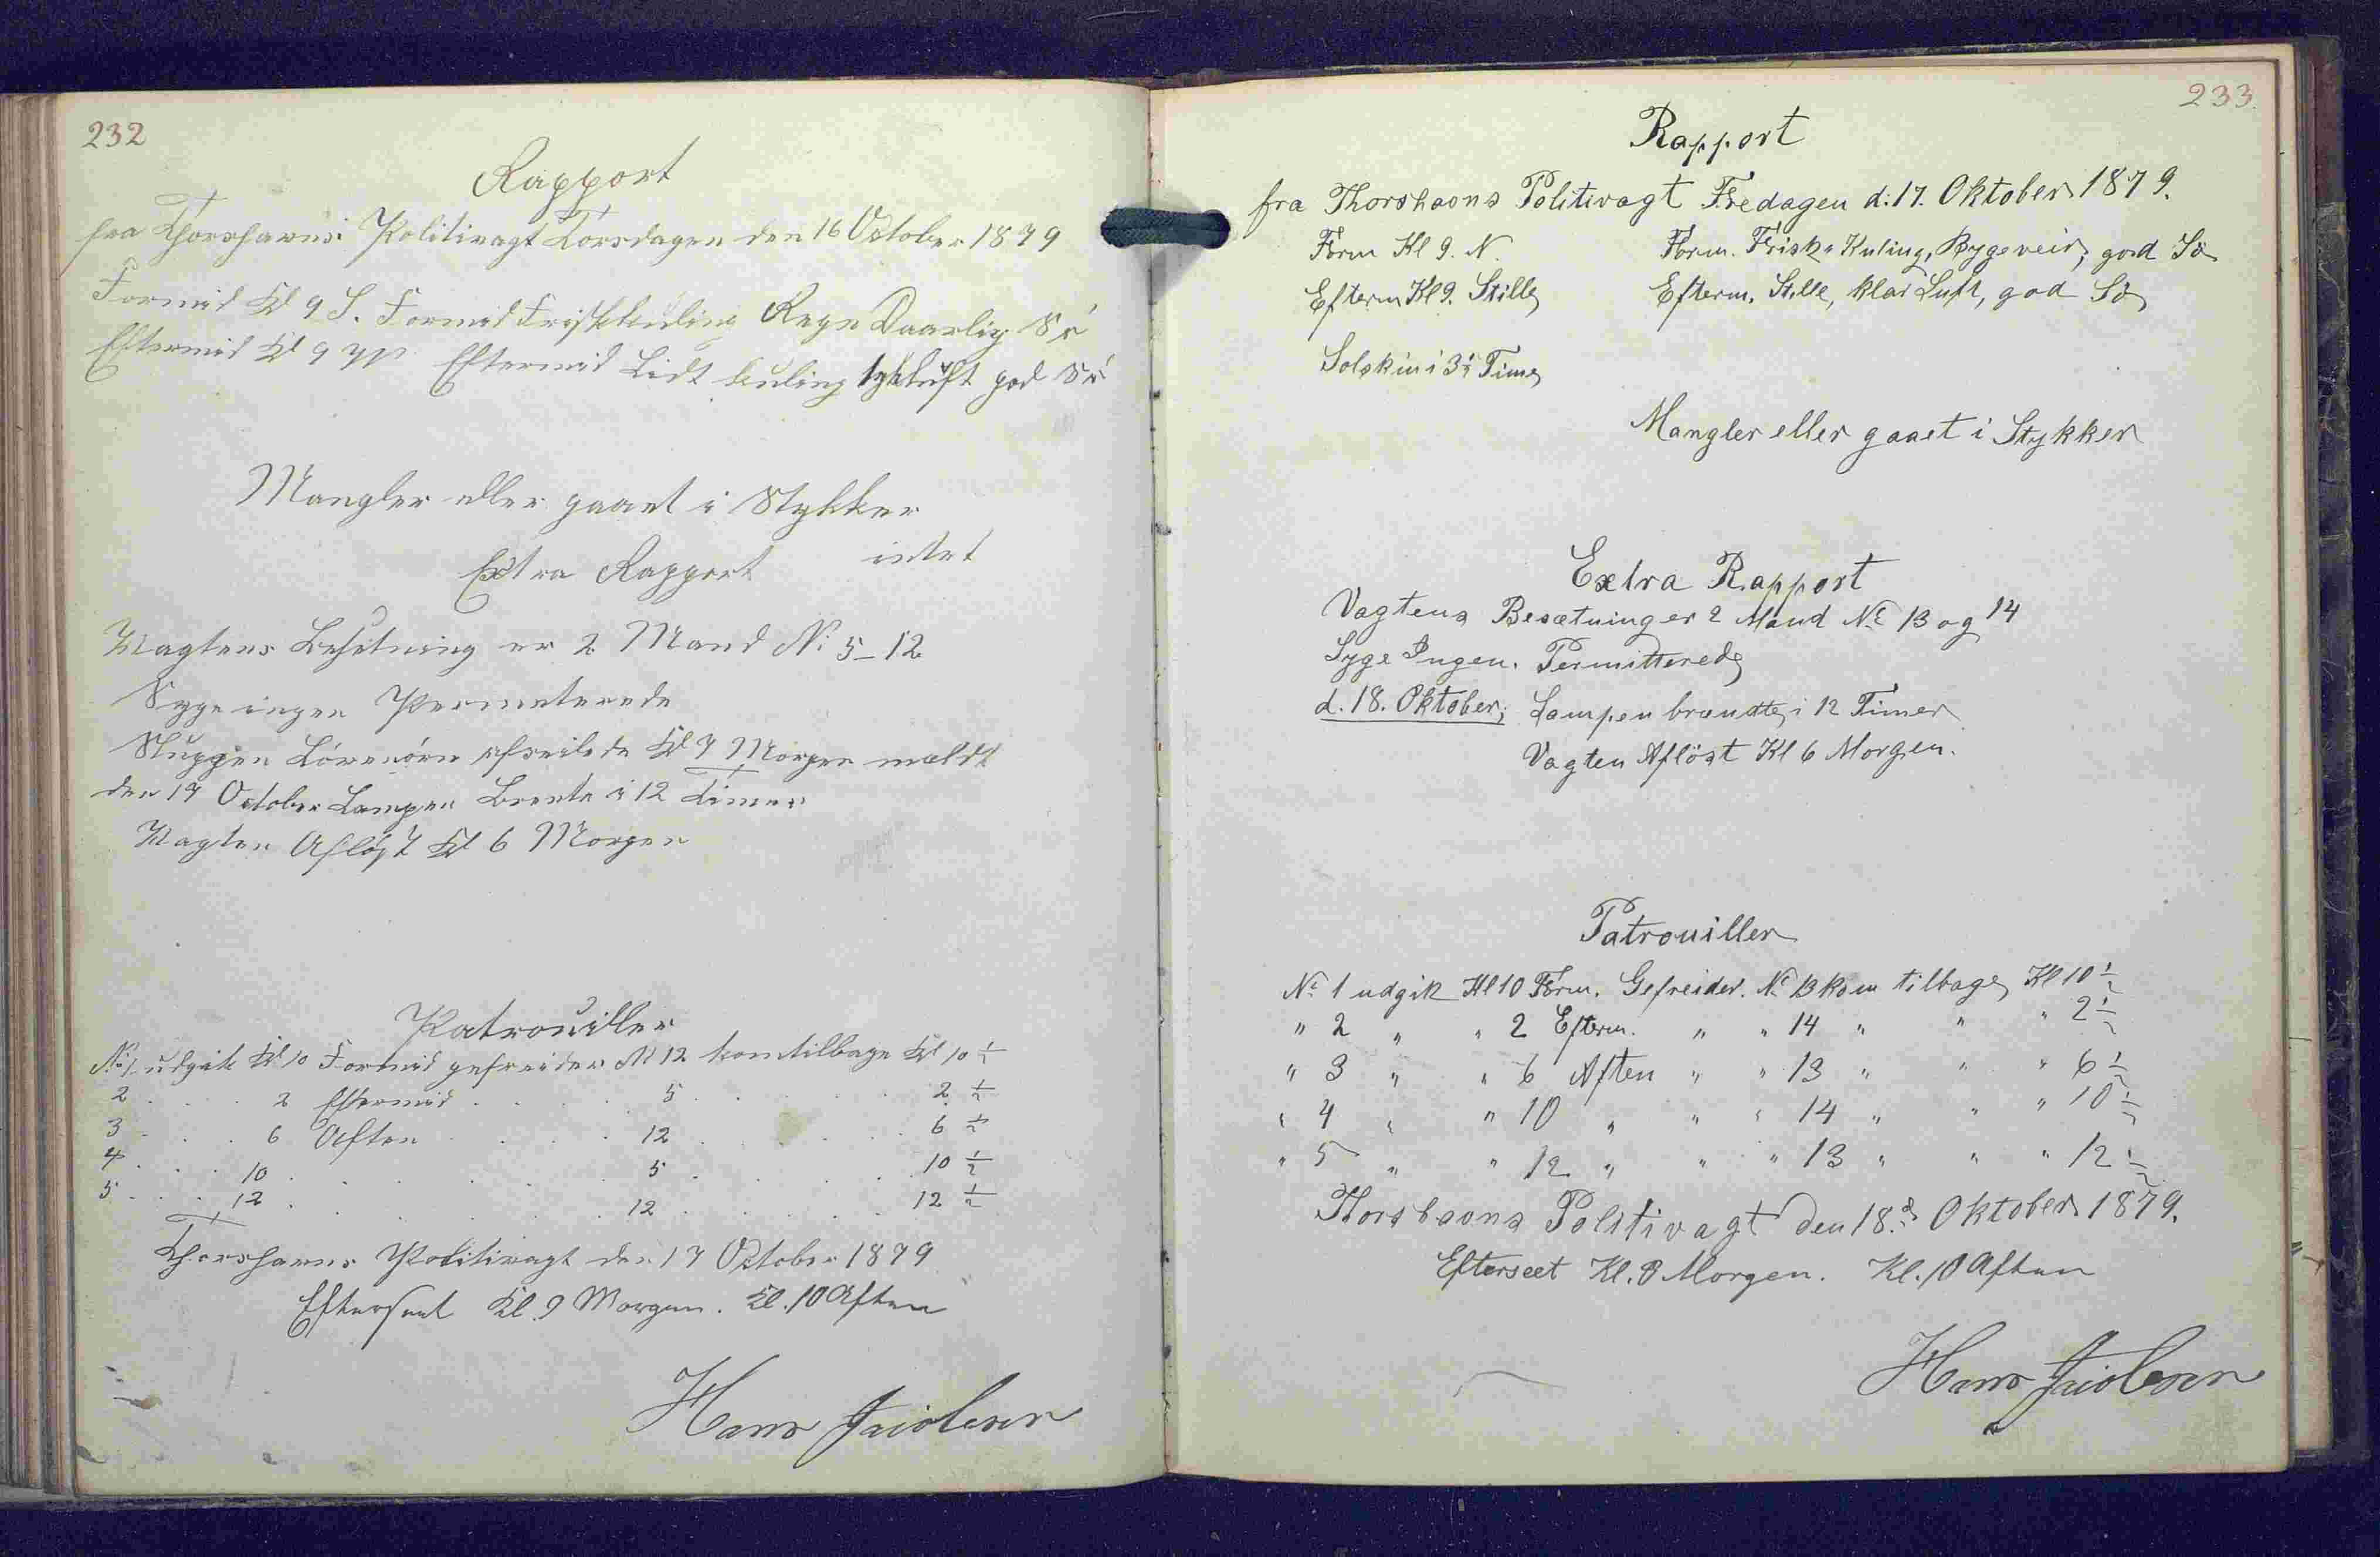 232
Rapport
fra Thorshavns Politivagt Torsdagen den 16 October 1879
Formid Kl 9 S. Formid Friskkuling Regn Daarlig Sö
Eftermid Kl 9 Eftermid Lidt kuling tykluft god Sö
Mangler eller gaaet i Stykker
intet
Extra Rapport
Vagtens Besetning er 2 Mand No 5-12
Syge ingen Permeterede
Sluppen Lövenörn afseilede Kl 7 Morgen meldt
den 17 October Lampen Brente i 12 Timer
Vagten Aflöst Kl 6 Morgen
Patrouiller
No 1 udgik Kl 10 Formid gefreider No 12 kom tilbage Kl 10 1/2
2 . . . 2 Eftermid . . . 5 . . . 2 1/2
3 . . . 6 Aften . . . 12 . . . 6 1/2
4 . . . 10 . . . 5 . . . 10 1/2
5 . . . 12 . . . 12 . . . 12 1/2
Thorshavns Politivagt den 17 October 1879
Efterseet Kl. 9 Morgen. Kl. 10 Aften
Hans Jacobsen
233.
Rapport
fra Thorshavns Politivagt Fredagen d: 17. Oktober 1879.
Form Kl 9. N. Form. Frisk Kuling, Bygeveir, god Sö
Efterm Kl 9. Stille Efterm. Stille, klar Luft, god Sö
Solskin i 3 1/2 Time
Mangler eller gaaet i Stykker
Extra Rapport
Vagtens Besætning er 2 Mand No 13 og 14
Syge Ingen. Permitterede
d. 18. Oktober; Lampen brændte i 12 Timer
Vagten Aflöst Kl 6 Morgen.
Patrouiller
No 1 udgik Kl 10 Form. Gefreider. No 13 kom tilbage Kl 10 1/2
" 2 " " 2 Efterm. " " 14 " " " 2 1/2
" 3 " " 6 Aften " " 13 " " " 6 1/2
" 4 " " 10 " " " 14 " " " 10 1/2
" 5 " " 12 " " " 13 " " " 12 1/2
Thorshavns Politivagt den 18.d Oktober 1879.
Efterseet Kl. 8 Morgen. Kl. 10 Aften
Hans Jacobsen